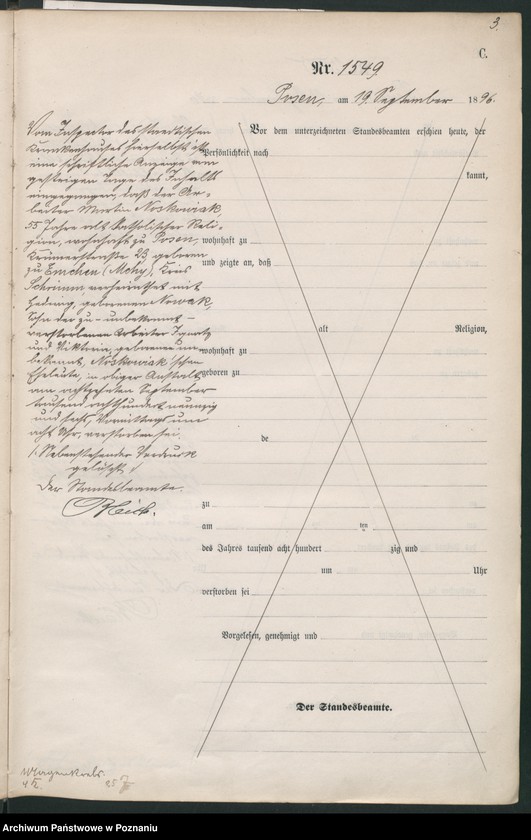 3.
C.
Nr. 1549
Posen, am 19. September 1896.
Vom Inspector des Staedtischen
Krankenhauses hierselbst ist
eine schriftliche Anzeige vom
gestrigen Tage des Inhalts
eingegangen, daß der Ar-
beiter Martin Noskowiak,
55 Jahre alt, katholischer Reli-
gion, wohnhaft zu Posen,
23, geboren
zu Emchen (Mchy), Kreis
Schrimm verheirathet mit
Hedwig, geborenen Nowak,
Sohn der zu - unbekannt -
verstorbenen Arbeiter
und Viktoria, geborene un-
bekannt, Noskowiak'schen
Eheleute, in obiger Anstalt
am achtzehnten September
tausend achthundert neunzig
und sechs, Vormittags um
acht Uhr, verstorben sei.
Nebenstehender Vordruck
gelöscht
Der Standesbeamte.
Vor dem unterzeichneten Standesbeamten erschien heute, der
Persönlichkeit nach
kannt,
wohnhaft zu
und zeigte an, daß
alt Religion,
wohnhaft zu
geboren zu
de
zu
am ten
des Jahres tausend acht hundert zig und
um Uhr
verstorben sei
Vorgelesen, genehmigt und
Der Standesbeamte.
Magenkrebs
Archiwum Państwowe w Poznaniu